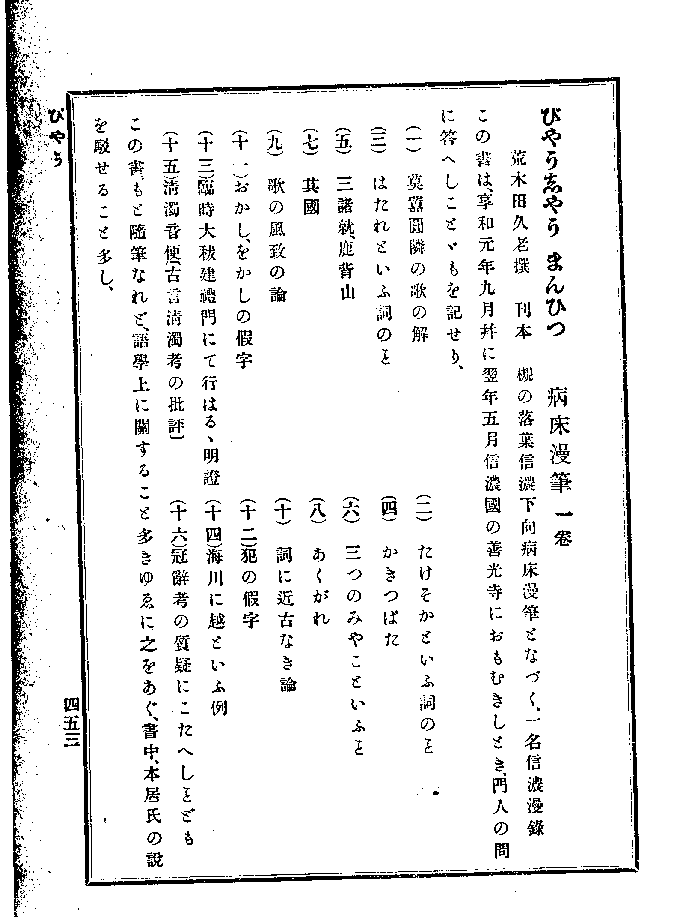 びやう
びやうゑやう まんひつ 病床漫筆 一卷
荒木田久老撰 刊本 槻の落葉信濃下向病床漫筆となづく、一名信濃漫錄
この書は、享和元年九月幷に翌年五月信濃國の善光寺におもむきしとき、門人の問
に答へしことゞもを記せり、
(一) 莫囂圓隣の歌の解
(二) たけそかといふ詞のこと
(三) はたれといふ詞のこと
(四) かきつばた
(五) 三諸就、鹿背山
(六) 三つのみやこといふこと
(七) 其國
(八) あくがれ
(九) 歌の風致の論
(十) 詞に近古なき論
(十一)おかし、をかしの假字
(十二)犯の假字
(十三)臨時大秡建禮門にて行はるゝ明證
(十四)海川に越といふ例
(十五)淸濁音便(古言淸濁考の批評)
(十六)冠辭考の質疑にこたへしことども
この書、もと隨筆なれど、語學上に關すること多きゆゑに之をあぐ、書中、本居氏の說
を駁せること多し、
四五三